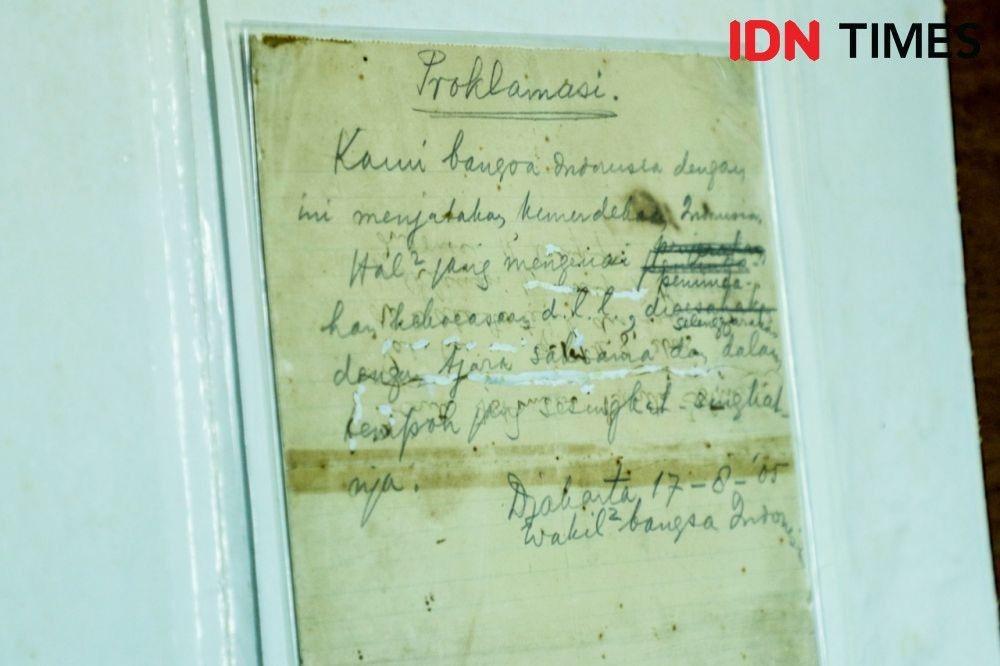 IDN TIMES
Proklamasi.
Kami bangsa Indonesia dengan
ini menjatakan kemerdekaan Indonesia.
Hal² jang mengenai
peminda-
han kekoeasaan d.l.l.,
diselenggarakan
dengan tjara saksama dan dalam
tempoh jang sesingkat-singkat-
nja.
Djakarta, 17-8-'05
Wakil² bangsa Indonesia